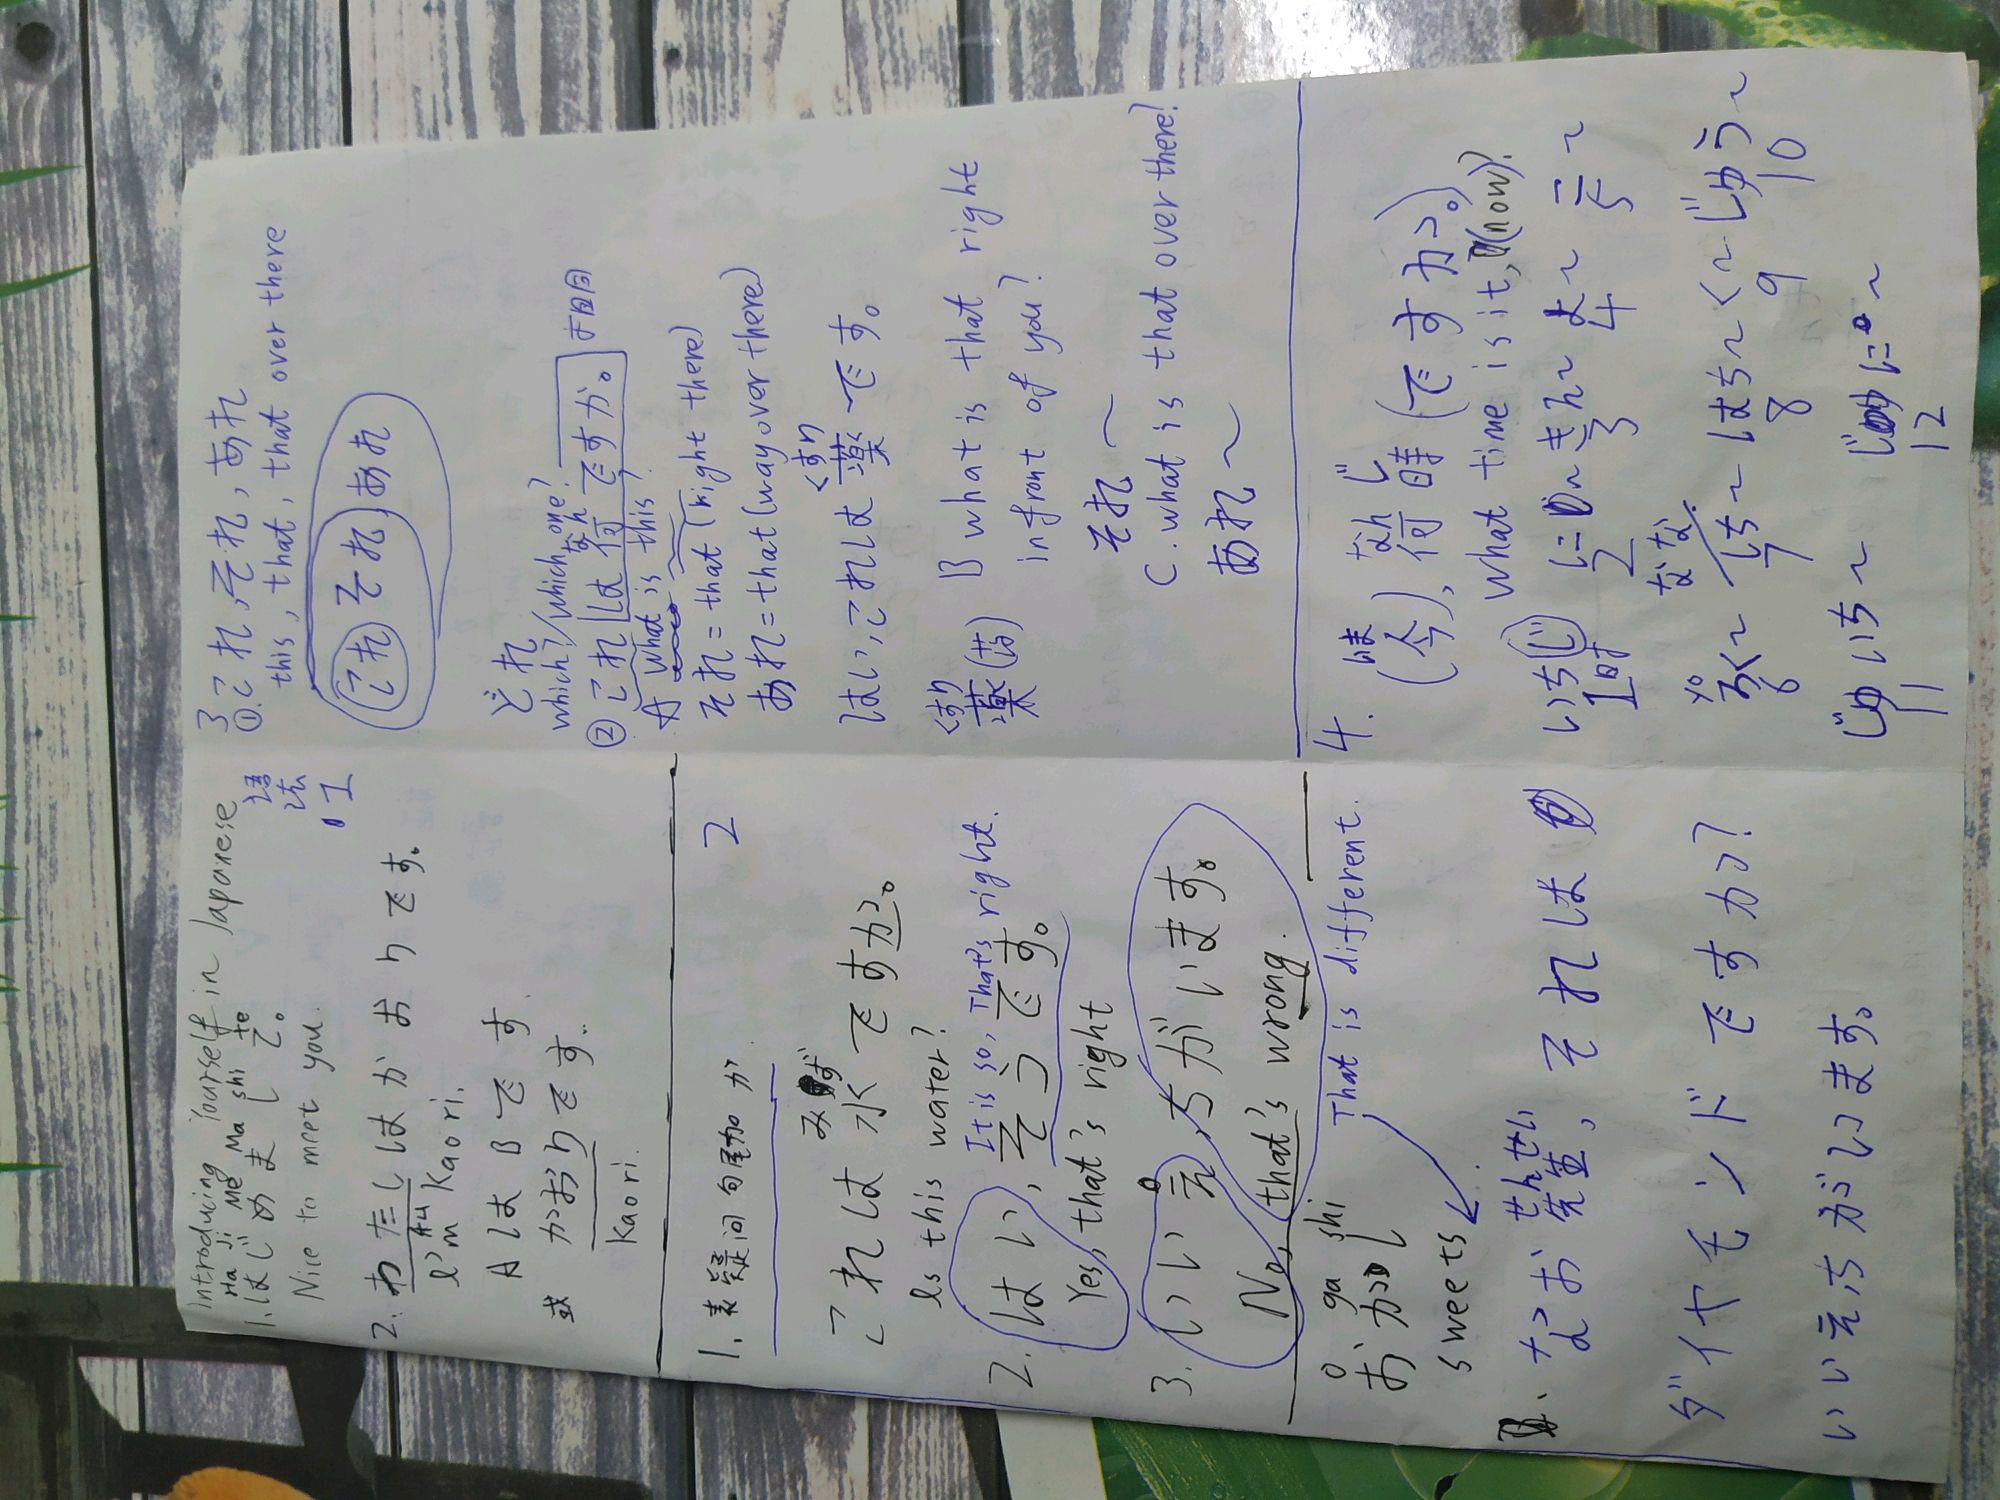 Introducing yourself in Japanese
語法 1
Ha Ji Me Ma shi te
1. はじめまして。
Nice to meet you.
2. わたしはかおりです。
I'm Kaori.
AはBです.
或 かおりです.
Kaori.
2
1. 表疑问句尾加 か.
みず
これは水ですか。
Is this water?
It is so, That's right.
2. はい, そうです。
Yes, that's right
3. いいえ, ちがいます。
No, that's wrong.
That is different.
o ga shi
おかし
sweets
せんせい
なお先生, それは
ダイヤモンドですか?
いいえちがいます。
3
①. これ, それ, あれ
this, that, that over there
これ それ あれ
どれ
which?/which one?
なん
② これは何ですか。
A What is this?
それ=that (right there)
あれ=that (way over there)
くすり
はい, これは薬です。
くすり
薬(药) B what is that right
in front of you?
それ〜
C. what is that over there?
あれ〜
4.
いま なん じ
(今), 何時 (ですか。)
what time is it, (now)?
いちじ に〜 さん〜 よ〜 ご〜
1时 2 3 4 5
なな
ろく〜 しち〜 はち〜 く〜 じゅう〜
6 7 8 9 10
じゅいち〜 じゅに〜
11 12